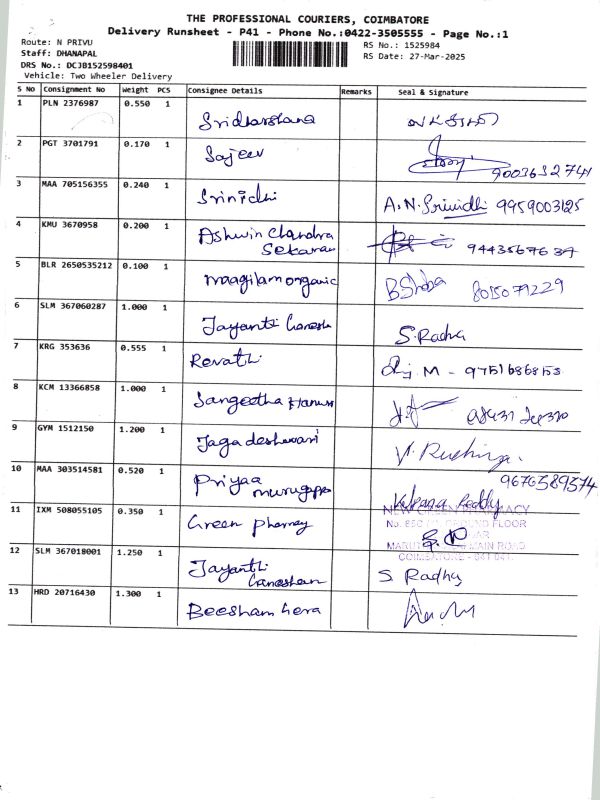 THE PROFESSIONAL COURIERS, COIMBATORE
Delivery Runsheet - P41 - Phone No.:0422-3505555 - Page No.:1
Route: N PRIVU
Staff: DHANAPAL
DRS No.: DCJB152598401
Vehicle: Two Wheeler Delivery
RS No.: 1525984
RS Date: 27-Mar-2025
S No Consignment No Weight PCS Consignee Details Remarks Seal & Signature
1 PLN 2376987 0.550 1 Sridharshana
2 PGT 3701791 0.170 1 Sajeev 9003632741
3 MAA 705156355 0.240 1 Srinidhi A.N.Srividhi 9959003125
4 KMU 3670958 0.200 1 Ashwin Chandra
Sekaran 9443567637
5 BLR 2650535212 0.100 1 maagilam organic B.Shoba 8015079229
6 SLM 367060287 1.000 1 Jayanthi Ganesh S.Radha
7 KRG 353636 0.555 1 Revathi M - 9751686858
8 KCM 13366858 1.000 1 Sangeetha
9 GYM 1512150 1.200 1 Jagadeshwari V. Ruchinga.
10 MAA 303514581 0.520 1 Priyaa
murugappa 9676589574
Kalpana Reddy
11 IXM 508055105 0.350 1 Green Pharmacy NEW GREEN PHARMACY
GROUND FLOOR
MAIN ROAD
COIMBATORE - 641 041.
12 SLM 367018001 1.250 1 Jayanthi
Ganeshan S Radha
13 HRD 20716430 1.300 1 Beesham hera